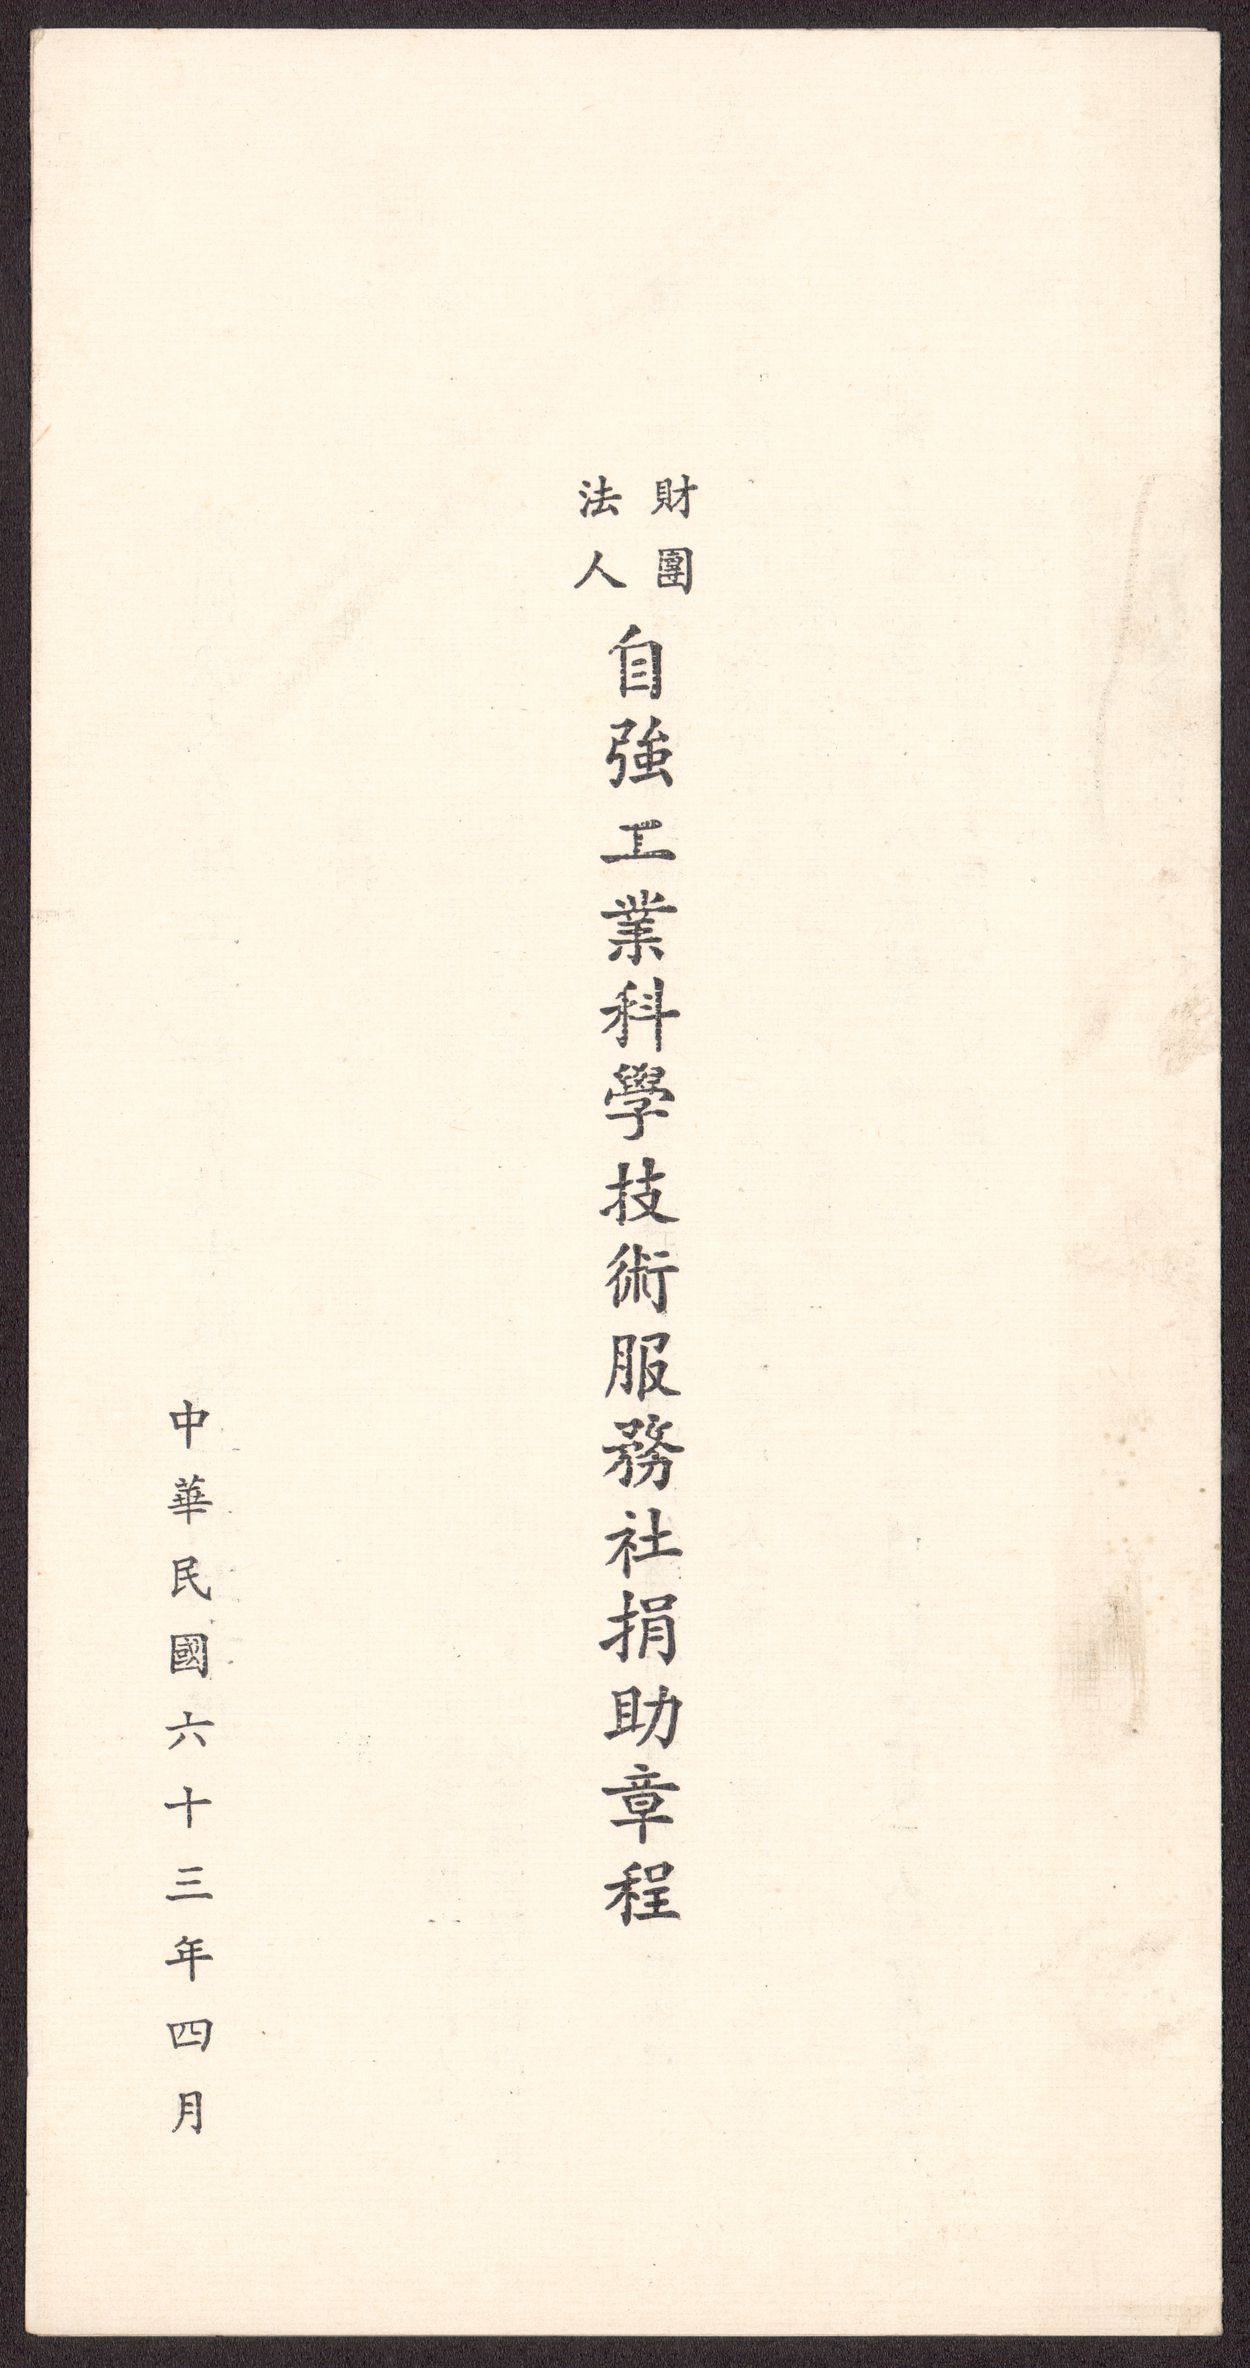 財團
法人
自強工業科學技術服務社捐助章程
中華民國六十三年四月